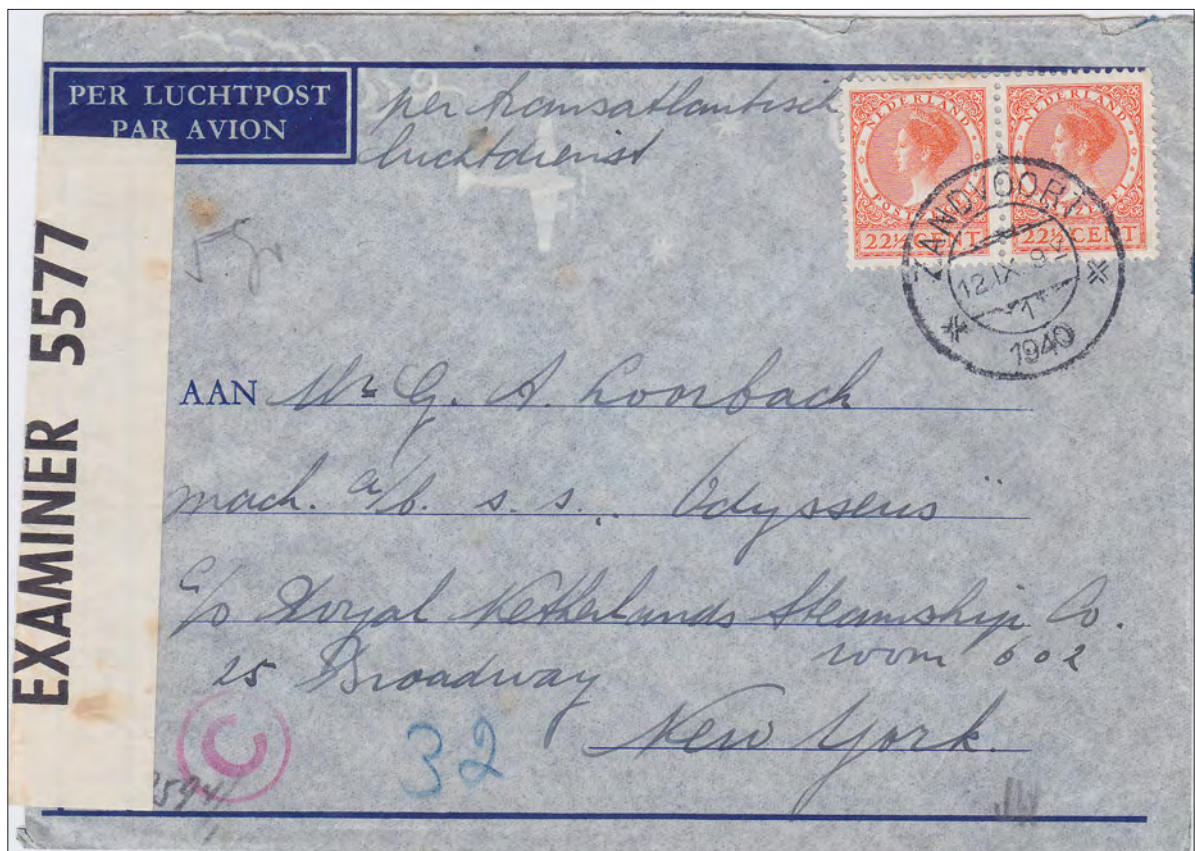 PER LUCHTPOST
PAR AVION
per transatlantisch
luchtdienst
NEDERLAND
POSTZEGEL
22½ CENT
NEDERLAND
22½ CENT
ZANDVOORT
12 IX
1
1940
EXAMINER 5577
5 gr
AAN Mr G. A. Loorbach
mach. a/b. s. s. „Odysseus"
c/o Royal Netherlands Steamship Co.
25 Broadway room 602
New York.
C
32